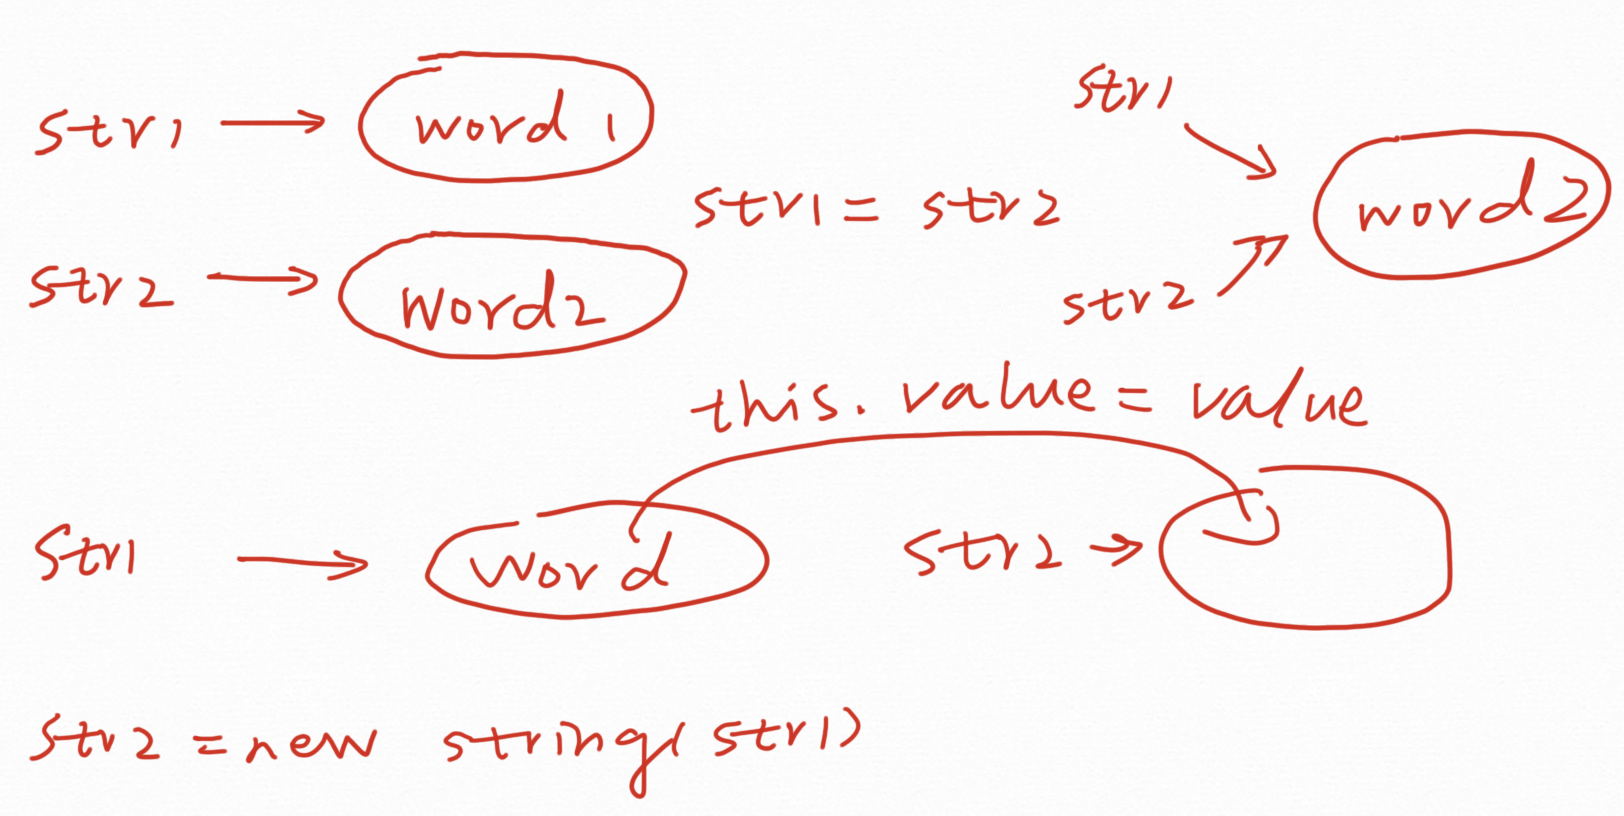 str1 → word1
str2 → word2
str1 = str2
str1
str2
word2
this.value = value
str1 → word
str2 →
str2 = new string(str1)